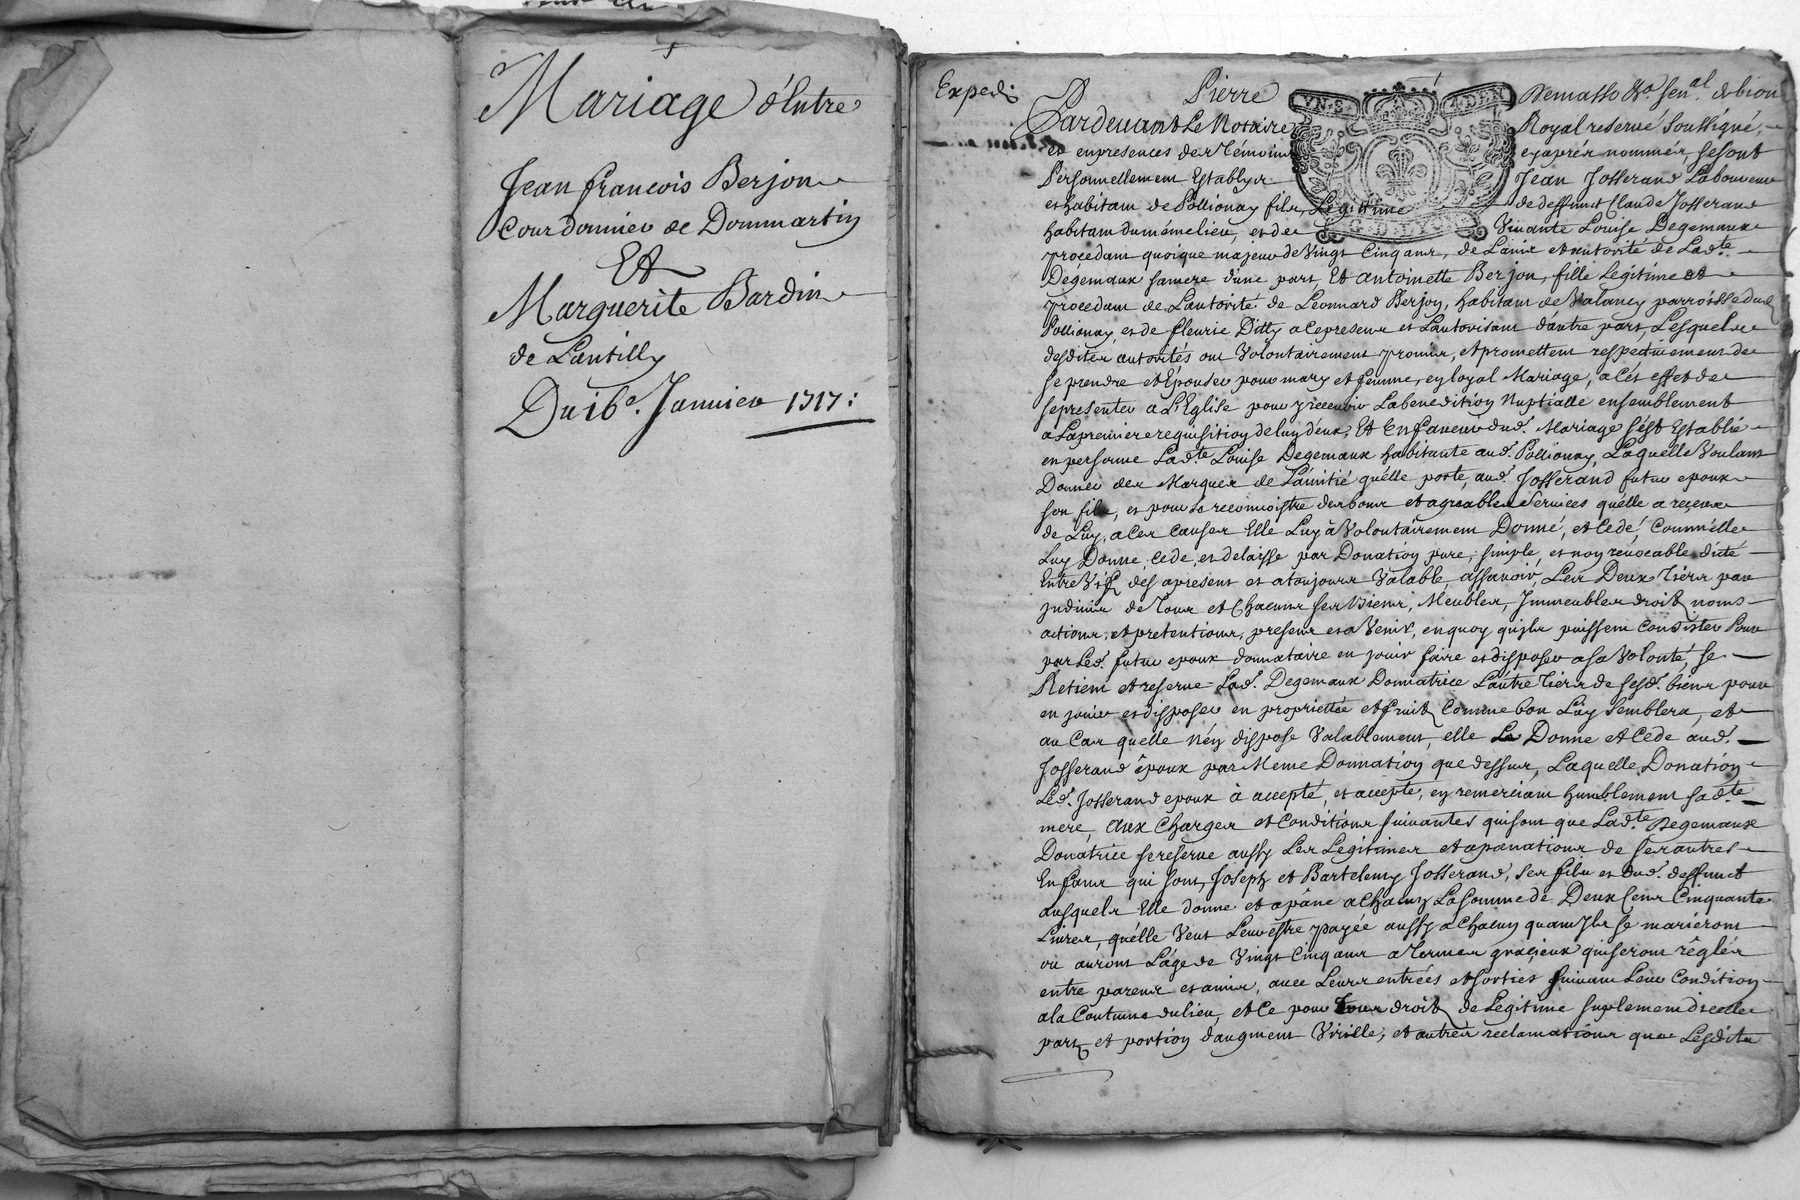 Mariage d'Entre
Jean francois Berjon
Courdonnier de Dommartin
Et
Marguerite Bardin
de Lantilly
Du 16e. Janvier 1717:
Expedié
Pierre
Pardevant Le Notaire Royal reservé Soussigné,
et en presences des Témoins cy aprés nommés, se sont
Personnellement Establys Jean Josserand Laboureur
et habitant de Pollionay fils Legitime de deffunct Claude Josserand
habitant du méme lieu, et de Vivante Louise Degemaux
procedant quoique majeur de Vingt Cinq ans, de L'avis et autorité de Ladte
Degemaux sa mere d'une part, Et Antoinette Berjon, fille Legitime et
procedant de L'autorité de Leonnard Berjon, habitant de Valancy parroisse dud
Pollionay, et de fleurie Ditty a ce presens et L'autorisant d'autre part, Lesquels
desdites autorités ont Volontairement promis, et promettent respectivement de
se prendre et Epouser pour mary et femme, en loyal Mariage, a Cés effet de
se presenter a L'Eglise pour y recevoir La benediction Nuptialle ensemblement
a La premiere requisition de l'un d'eux, Et En faveur dud. Mariage s'ést Establie
en personne Ladte Louise Degemaux habitante aud. Pollionay, Laquelle Voulant
Donner des Marques de L'amitié qu'elle porte, aud. Josserand futur epoux
son fils, et pour se reconnoistre des bons et agreables Services qu'elle a reçeus
de Luy, a Ces Causes Elle Luy à Volontairement Donné, et Cedé, Comm'elle
Luy Donne, Cede, et delaisse par Donation pure, simple, et non revocable ditte
Entre Vifs des apresent et a toujours Valable, assavoir, Les Deux Tiers par
indivis de Tous et Chacuns ses biens, Meubles, Immeubles droits noms
actions, et pretentions, presens et a Venir, en quoy qu'ils puissent Consister Pour
par Led. futur epoux donnataire en jouir faire et disposer a sa Volonté, Se
Retient et reserve Lad. Degemaux Donnatrice L'autre Tiers de sesd. biens pour
en jouir et disposer en proprietté et fruits Comme bon Luy Semblera, et
au Cas qu'elle n'en dispose Valablement, elle Le Donne et Cede aud.
Josserand époux par Meme Donnation que dessus, Laquelle Donation
Led. Josserand epoux à accepté, et accepte, en remerciant humblement Sadte
mere, aux Charges et Conditions suivantes qui sont que Ladte Degemaux
Donatrice se reserve aussy Les Legitimes et apanations de ses autres
Enfans qui sont, Joseph et Bartelemy Josserand, ses fils et dud. deffunct
ausquels Elle donne et apâne a Chacun La somme de Deux Cens Cinquante
Livres, qu'elle Veut Leur estre payée aussy a Chacun quand Ils se mariéront
ou auront L'age de Vingt Cinq ans a Termes graçieux qui seront réglés
entre parens et amis, avec Leurs entrées et sorties suivant Leur Condition
a la Coutume du lieu, et Ce pour tous droits de Legitime suplement d'icelle
part, et portion d'augment Virille, et autres reclamations que Lesdits